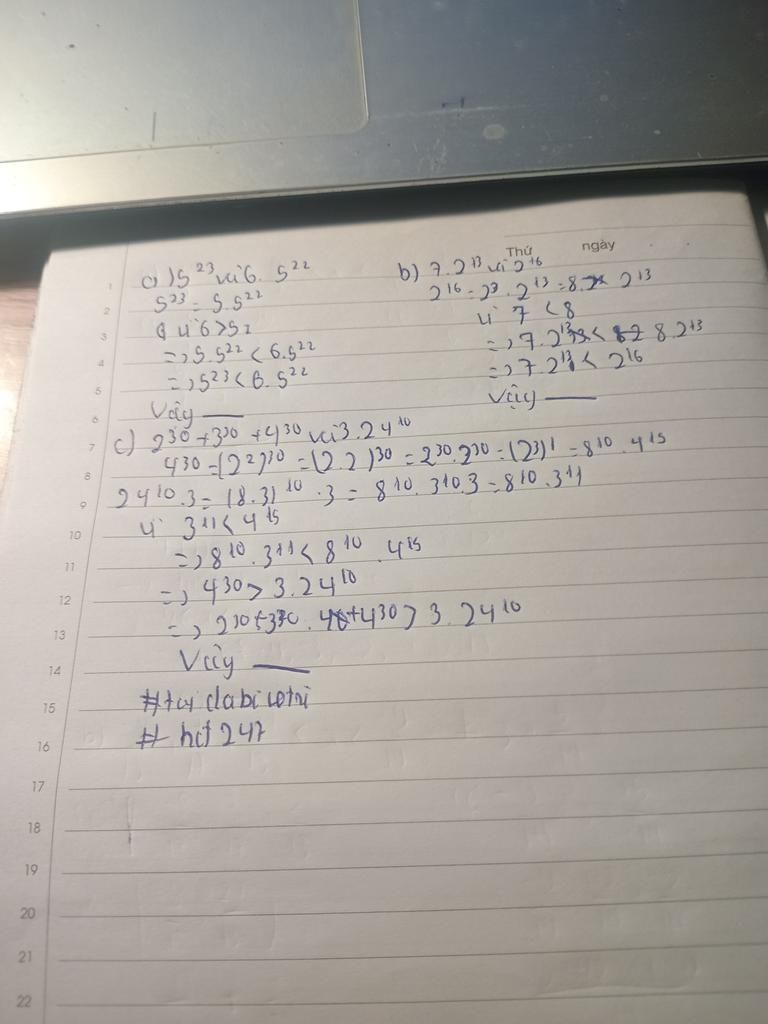 Thứ ngày
a) 5²³ và 6. 5²²
5²³ = 5.5²²
vì 6>5
=> 5.5²² < 6.5²²
=> 5²³ < 6.5²²
Vậy
b) 7.2¹³ và 2¹⁶
2¹⁶ = 2³.2¹³ = 8. 2¹³
vì 7 < 8
=> 7.2¹³ < 8.2¹³
=> 7.2¹³ < 2¹⁶
Vậy
c) 2³⁰ + 3³⁰ + 4³⁰ và 3.24¹⁰
4³⁰ = (2²)³⁰ = (2.2)³⁰ = 2³⁰.2³⁰ = (2³)¹ = 8¹⁰.4¹⁵
24¹⁰.3 = (8.3)¹⁰.3 = 8¹⁰.3¹⁰.3 = 8¹⁰.3¹¹
vì 3¹¹ < 4¹⁵
=> 8¹⁰.3¹¹ < 8¹⁰.4¹⁵
=> 4³⁰ > 3.24¹⁰
=> 2³⁰+3³⁰ +4³⁰ > 3.24¹⁰
Vậy
# 247
1
2
3
4
5
6
7
8
9
10
11
12
13
14
15
16
17
18
19
20
21
22